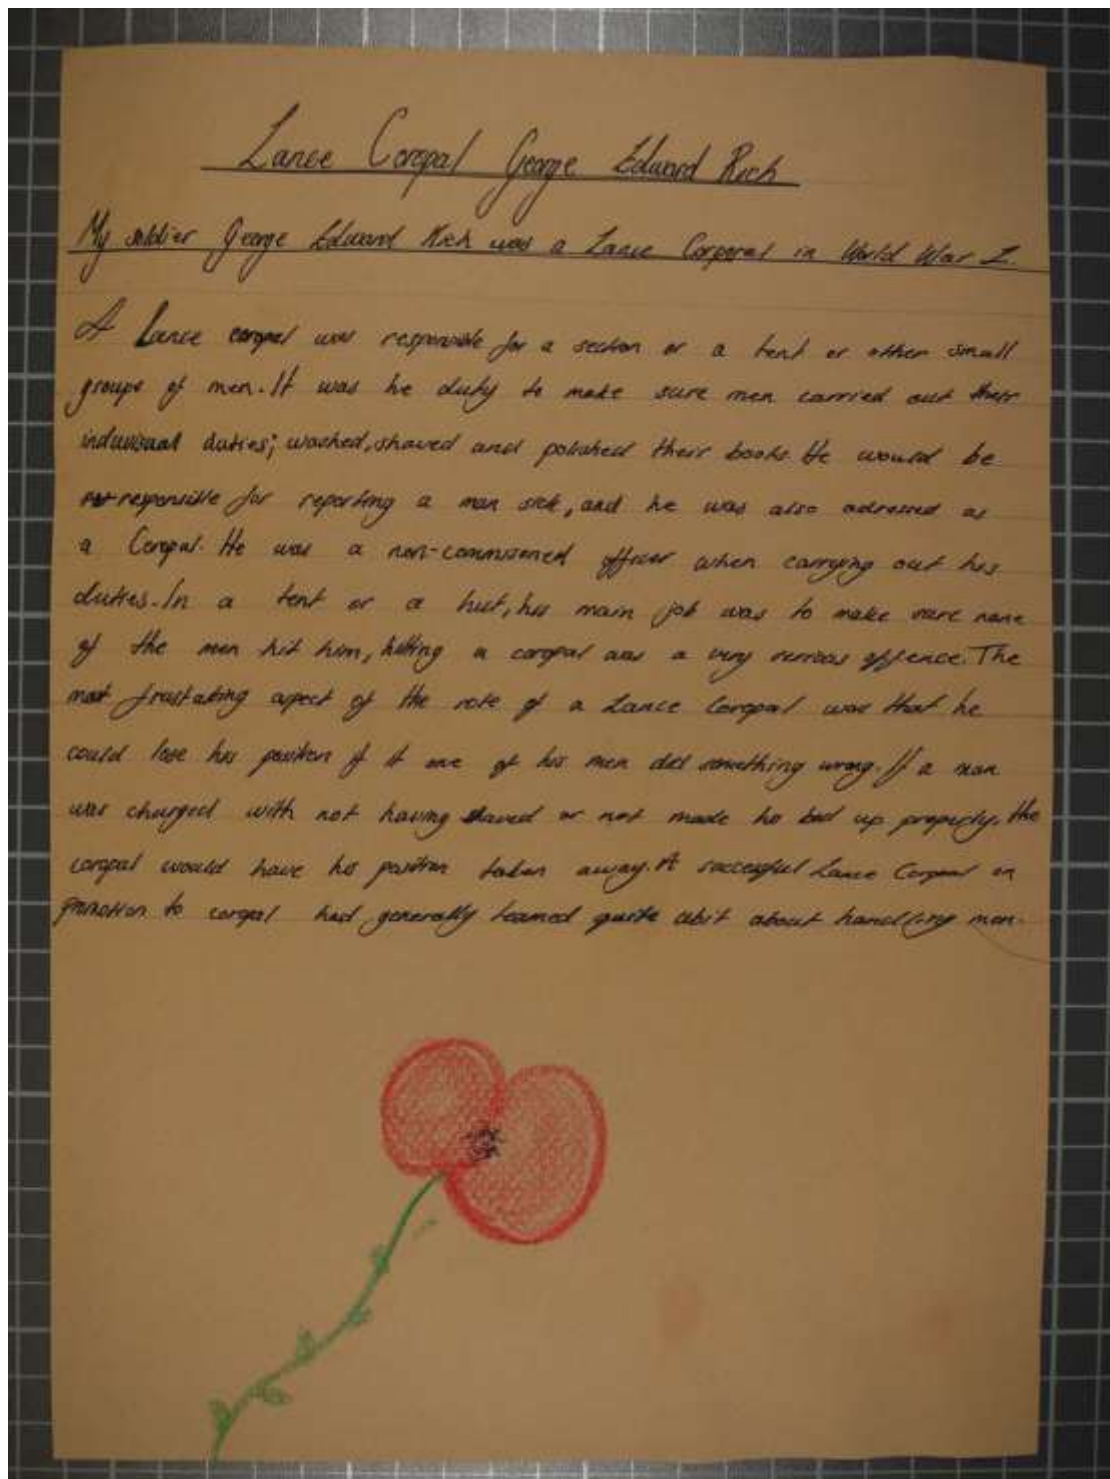 Lance Coropal George Edward Rich
My soldier George Edward Rich was a Lance Corporal in World War I.
A Lance coropal was responsible for a section or a tent or other small
groups of men. It was he duty to make sure men carried out their
induvisual duties; washed, shaved and polished their boots. He would be
responsible for reporting a man sick, and he was also adressed as
a Coropal. He was a non-commisioned officer when carrying out his
duties. In a tent or a hut, his main job was to make sure none
of the men hit him, hitting a coropal was a very serrious offence. The
most frustating aspect of the role of a Lance Coropal was that he
could lose his position if it one of his men did something wrong. If a man
was charged with not having shaved or not made his bed up properly, the
coropal would have his position taken away. A successful Lance Coropal on
promotion to coropal had generally learned quite abit about handling men.